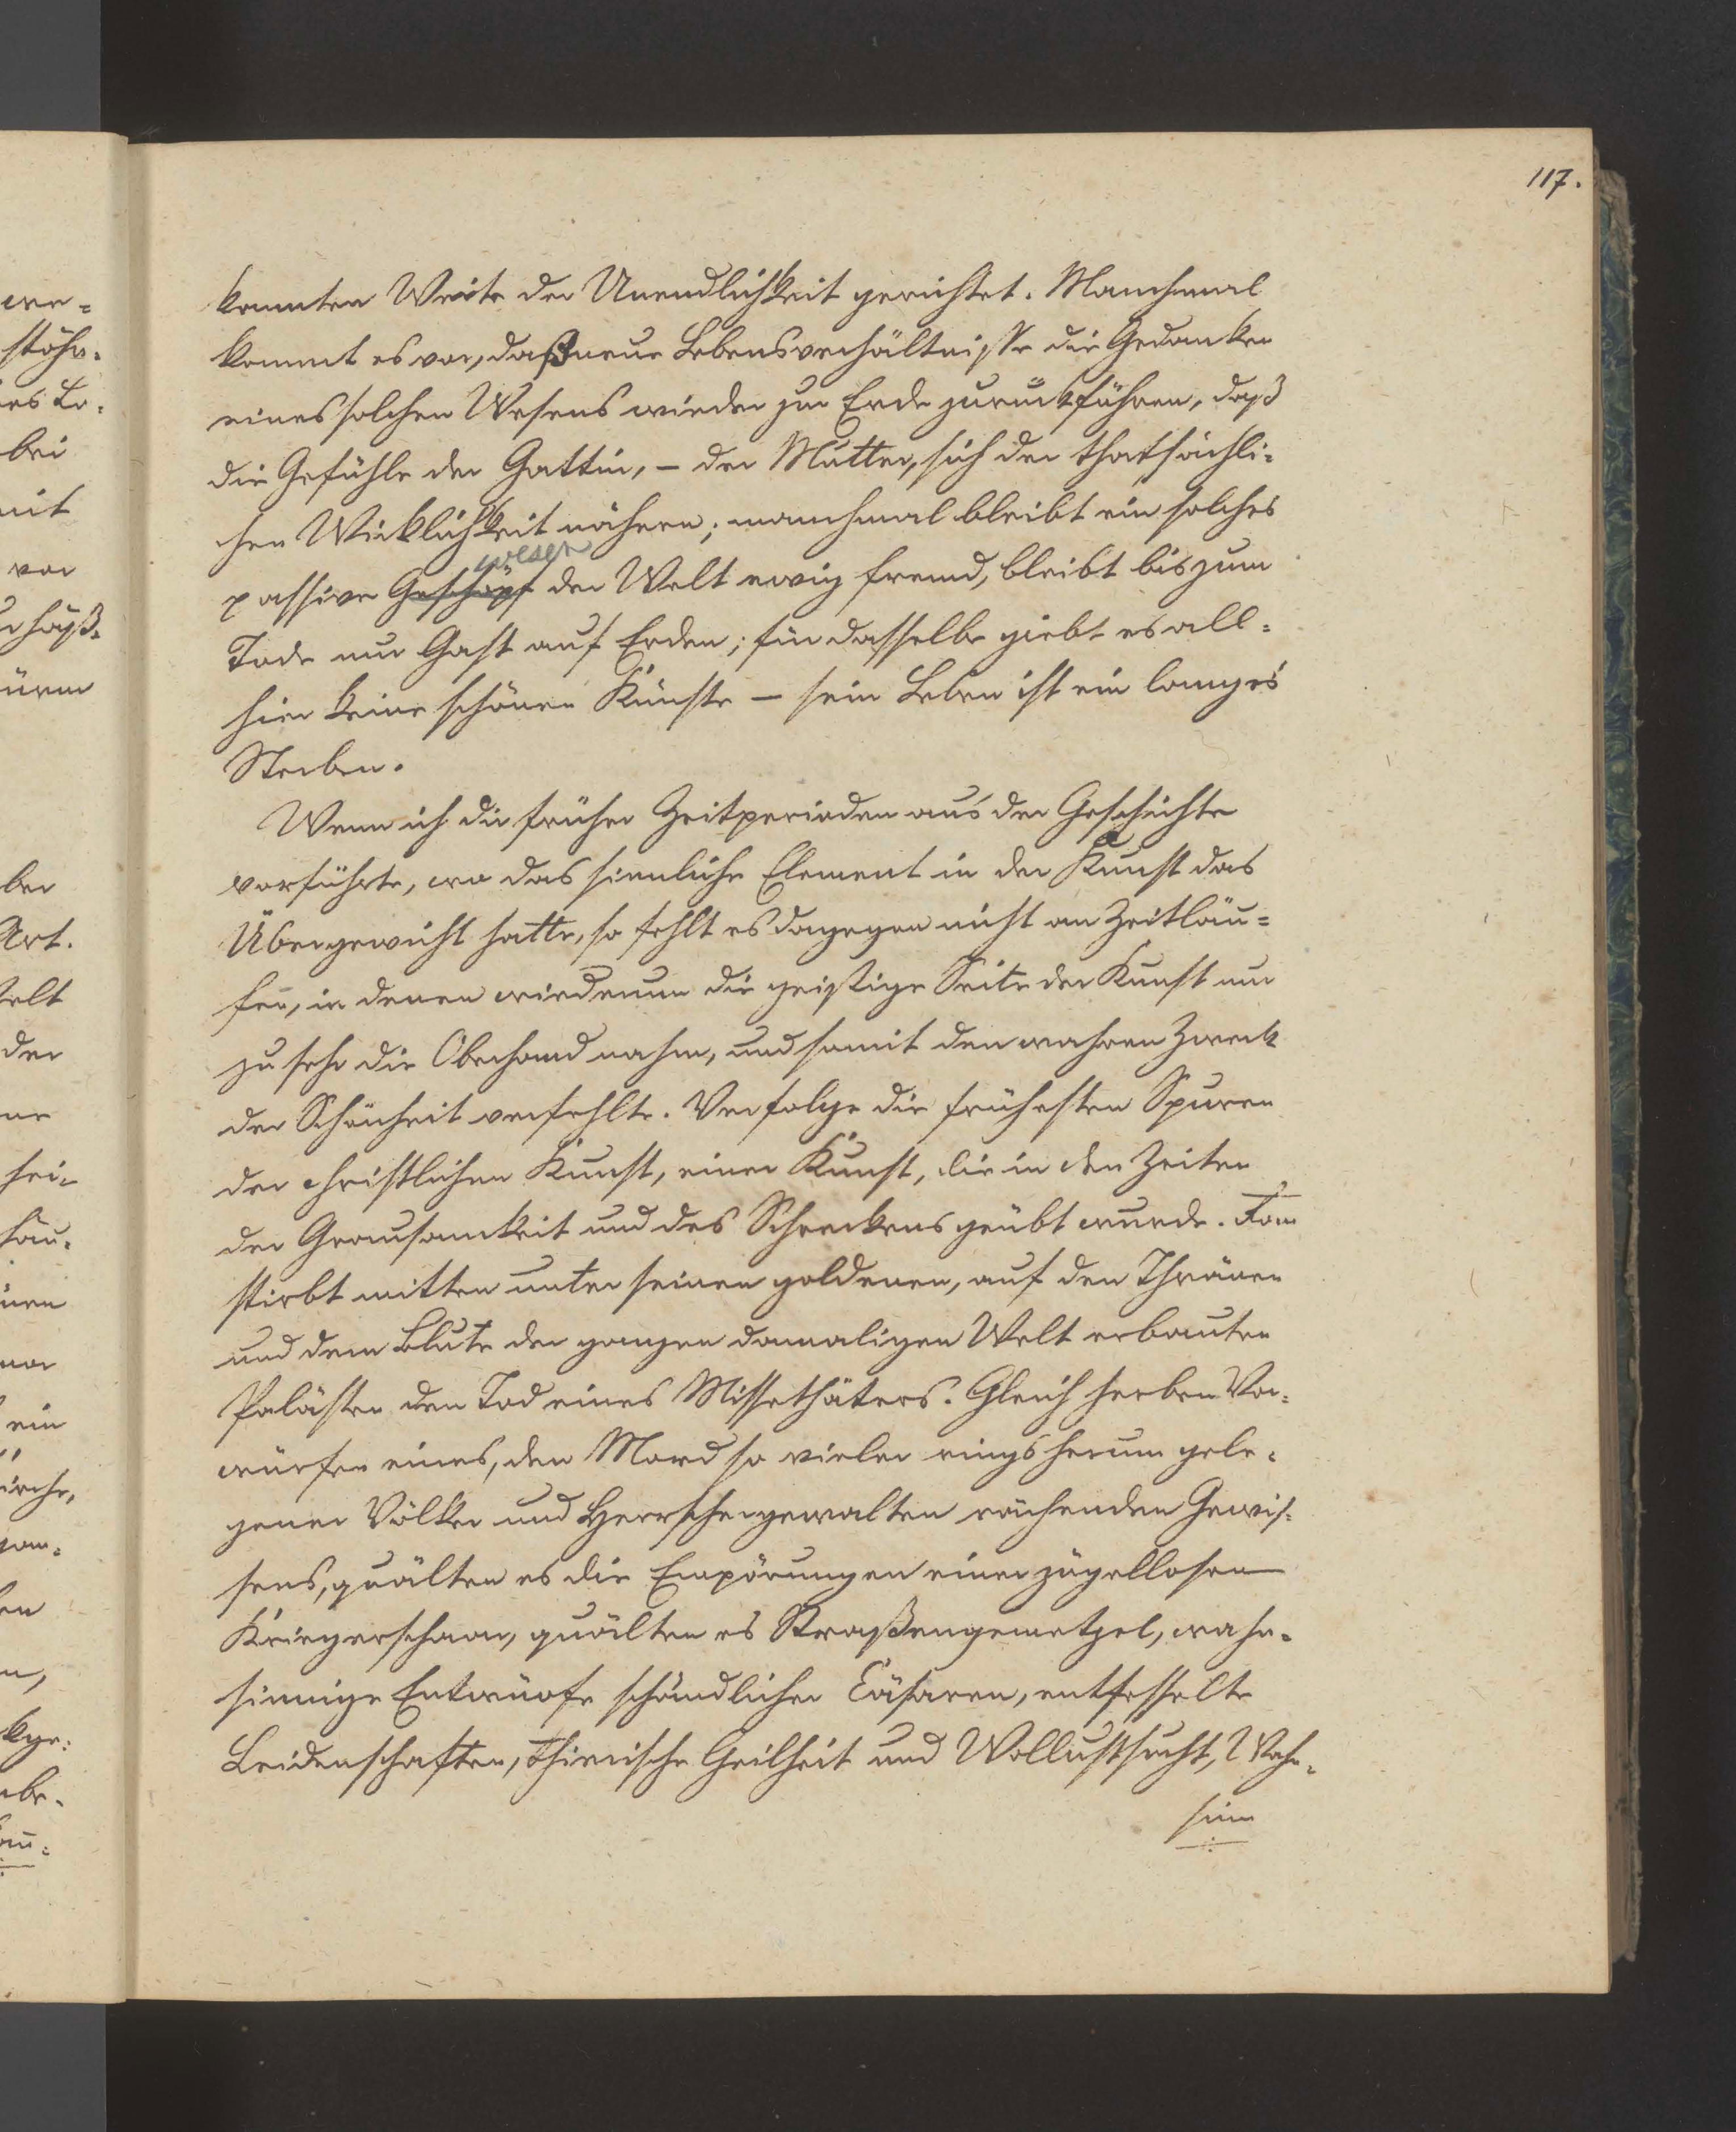 117.
kannten Weite der Unendlichkeit gerichtet. Manchmal
kommt es vor, daß neue Lebensverhältniße die Gedanken
eines solchen Wesens wieder zur Erde zurückführen, daß
die Gefühle der Gattin, – der Mutter, sich der thatsächli-
chen Wirklichkeit nähern; manchmal bleibt ein solches
wesen
passive Geschöpf der Welt ewig fremd, bleibt bis zum
Tode nur Gast auf Erden; für dasselbe giebt es all-
hier keine schönen Künste – sein Leben ist ein langes
Sterben.
Wenn ich die früher Zeitperioden aus der Geschichte
vorführte, wo das sinnliche Element in der Kunst das
Übergewicht hatte, so fehlt es dagegen nicht an Zeitläu-
fen, in denen wiederum die geistige Seite der Kunst nur
zu sehr die Oberhand nahm, und somit den wahren Zweck
der Schönheit verfehlte. Verfolge die frühesten Spuren
der christlichen Kunst, einer Kunst, die in den Zeiten
der Grausamkeit und des Schreckens geübt wurde.
stirbt mitten unter seinen goldenen, auf den Thränen
und dem Blute der ganzen damaligen Welt erbauten
Palästen den Tod eines Missethäters. Gleich herben Vor-
würfen eines, den Mord so vieler ringsherum gele-
gener Völker und Herrschergewalten rächenden Gewis-
sens, quälten es die Empörungen einer zügellosen
Kriegerschaar, quälten es Straßengemetzel, wahn-
sinnige Entwürfe schändlicher Cäsaren, entfesselte
Leidenschaften, thierische Geilheit und Wollustsucht, Wahn-
sinn